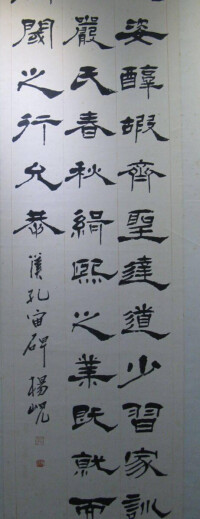 姿醇嘏齊聖達道少習家訓
嚴氏春秋緝熙之業既就而
閾之行允恭 漢孔宙碑 楊峴